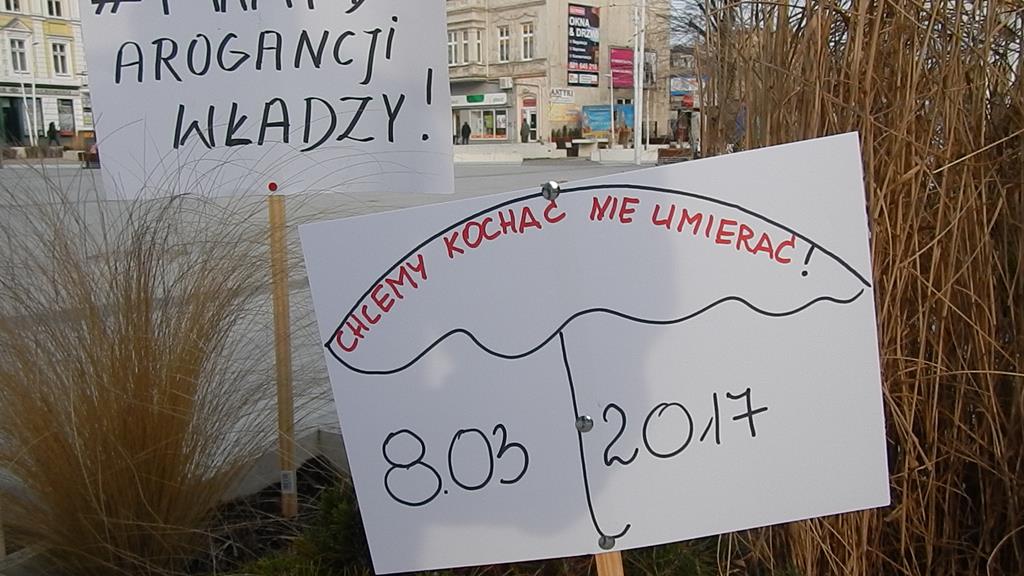 AROGANCJi
WŁADZY!
CHCEMY KOCHAĆ NIE UMIERAĆ!
8.03 2017
OKNA
& DRZWI
ANTYKI